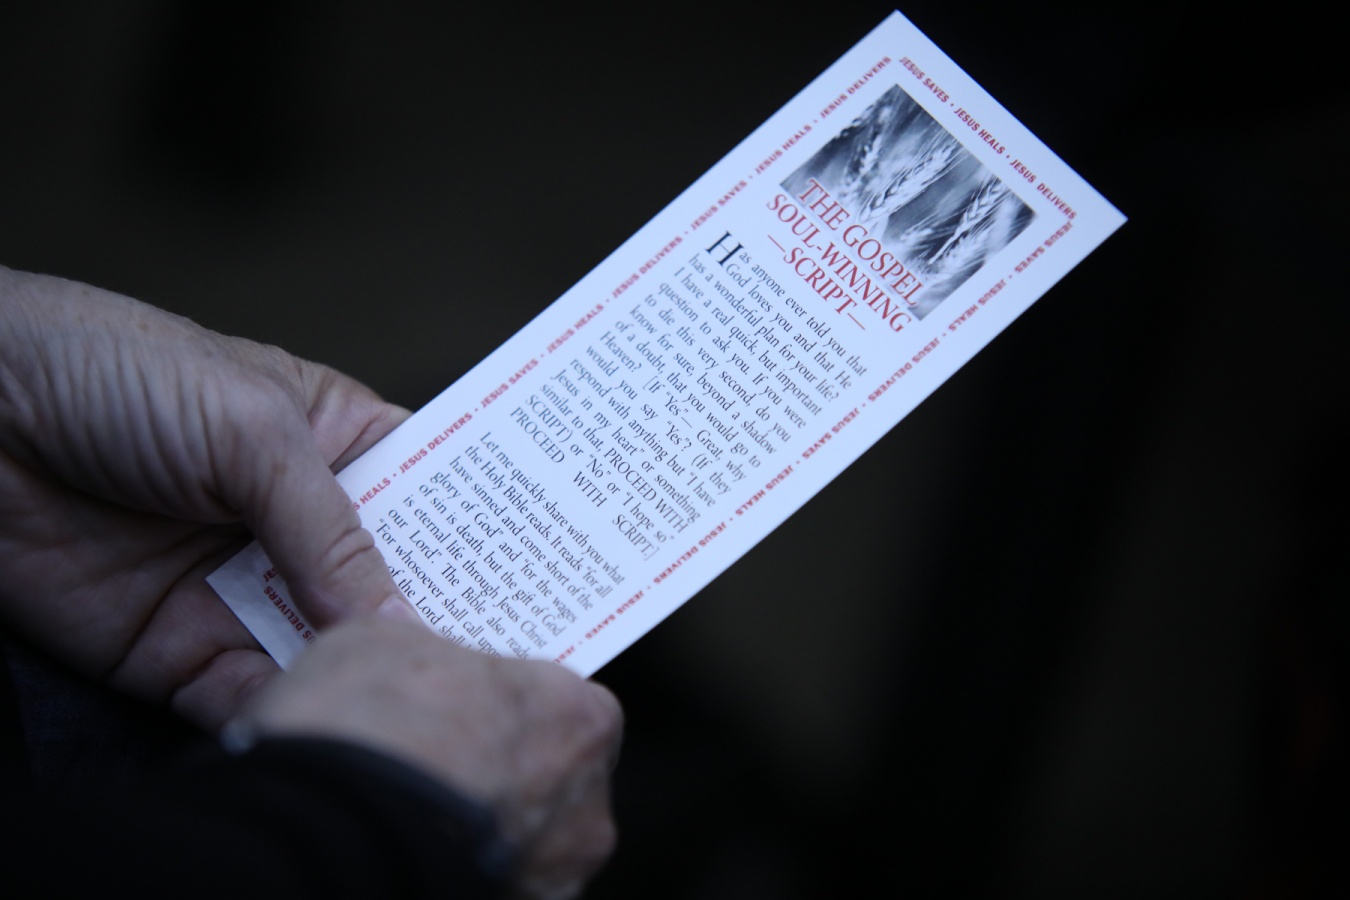 JESUS SAVES • JESUS HEALS • JESUS DELIVERS
THE GOSPEL
SOUL-WINNING
—SCRIPT—
Has anyone ever told you that
God loves you and that He
has a wonderful plan for your life?
I have a real quick, but important
question to ask you. If you were
to die this very second, do you
know for sure, beyond a shadow
of a doubt, that you would go to
Heaven? [If "Yes"— Great, why
would you say "Yes"? (If they
respond with anything but "I have
Jesus in my heart" or something
similar to that, PROCEED WITH
SCRIPT) or "No" or "I hope so"
PROCEED WITH SCRIPT.]
Let me quickly share with you what
the Holy Bible reads. It reads "for all
have sinned and come short of the
glory of God" and "for the wages
of sin is death, but the gift of God
is eternal life through Jesus Christ
our Lord". The Bible also reads,
"For whosoever shall call upon
of the Lord shall
HEALS • JESUS DELIVERS • JESUS SAVES • JESUS HEALS • JESUS DELIVERS • JESUS SAVES • JESUS HEALS • JESUS DELIVERS
JESUS SAVES • JESUS HEALS • JESUS DELIVERS • JESUS SAVES • JESUS HEALS • JESUS DELIVERS • JESUS SAVES •
US DELIVERS